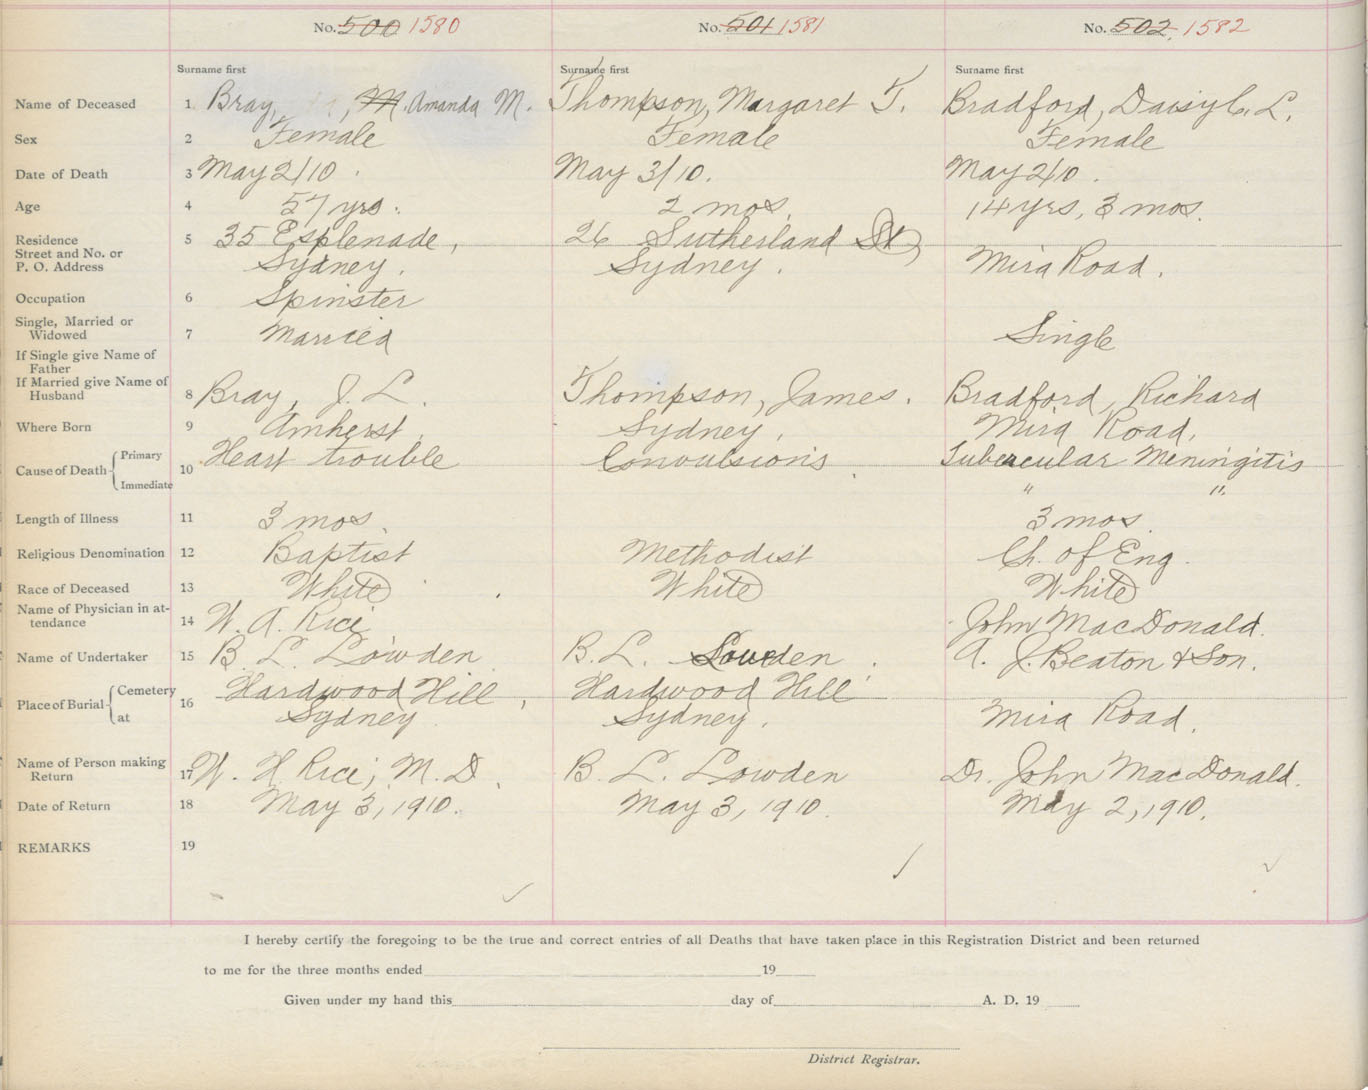 No. 500 1580 No. 501 1581 No. 502 1582
Surname first Surname first Surname first
Name of Deceased 1 Bray, M. Amanda M. Thompson, Margaret T. Bradford, Daisy C. L.
Sex 2 Female Female Female
Date of Death 3 May 2/10. May 3/10. May 2/10.
Age 4 57 yrs. 2 mos. 14 yrs, 3 mos.
Residence 5 35 Esplenade, 26 Sutherland St,
Street and No. or
P. O. Address Sydney. Sydney. Mira Road.
Occupation 6 Spinster
Single, Married or
Widowed 7 Married Single
If Single give Name of
Father
If Married give Name of
Husband 8 Bray, J. L. Thompson, James. Bradford, Richard
Where Born 9 Amherst. Sydney. Mira Road.
Cause of Death Primary Heart trouble Convulsions Tubercular Meningitis
10
Immediate " "
Length of Illness 11 3 mos. 3 mos.
Religious Denomination 12 Baptist Methodist Ch. of Eng.
Race of Deceased 13 White White White
Name of Physician in at-
tendance 14 W. A. Rice John MacDonald.
Name of Undertaker 15 B. L. Lowden B. L. Lowden. A. J. Beaton & Son.
Place of Burial Cemetery 16 Hardwood Hill, Hardwood Hill
at Sydney Sydney. Mira Road.
Name of Person making
Return 17 W. H. Rice, M. D. B. L. Lowden Dr. John MacDonald.
Date of Return 18 May 3, 1910. May 3, 1910. May 2, 1910.
REMARKS 19
I hereby certify the foregoing to be the true and correct entries of all Deaths that have taken place in this Registration District and been returned
to me for the three months ended 19
Given under my hand this day of A. D. 19
District Registrar.